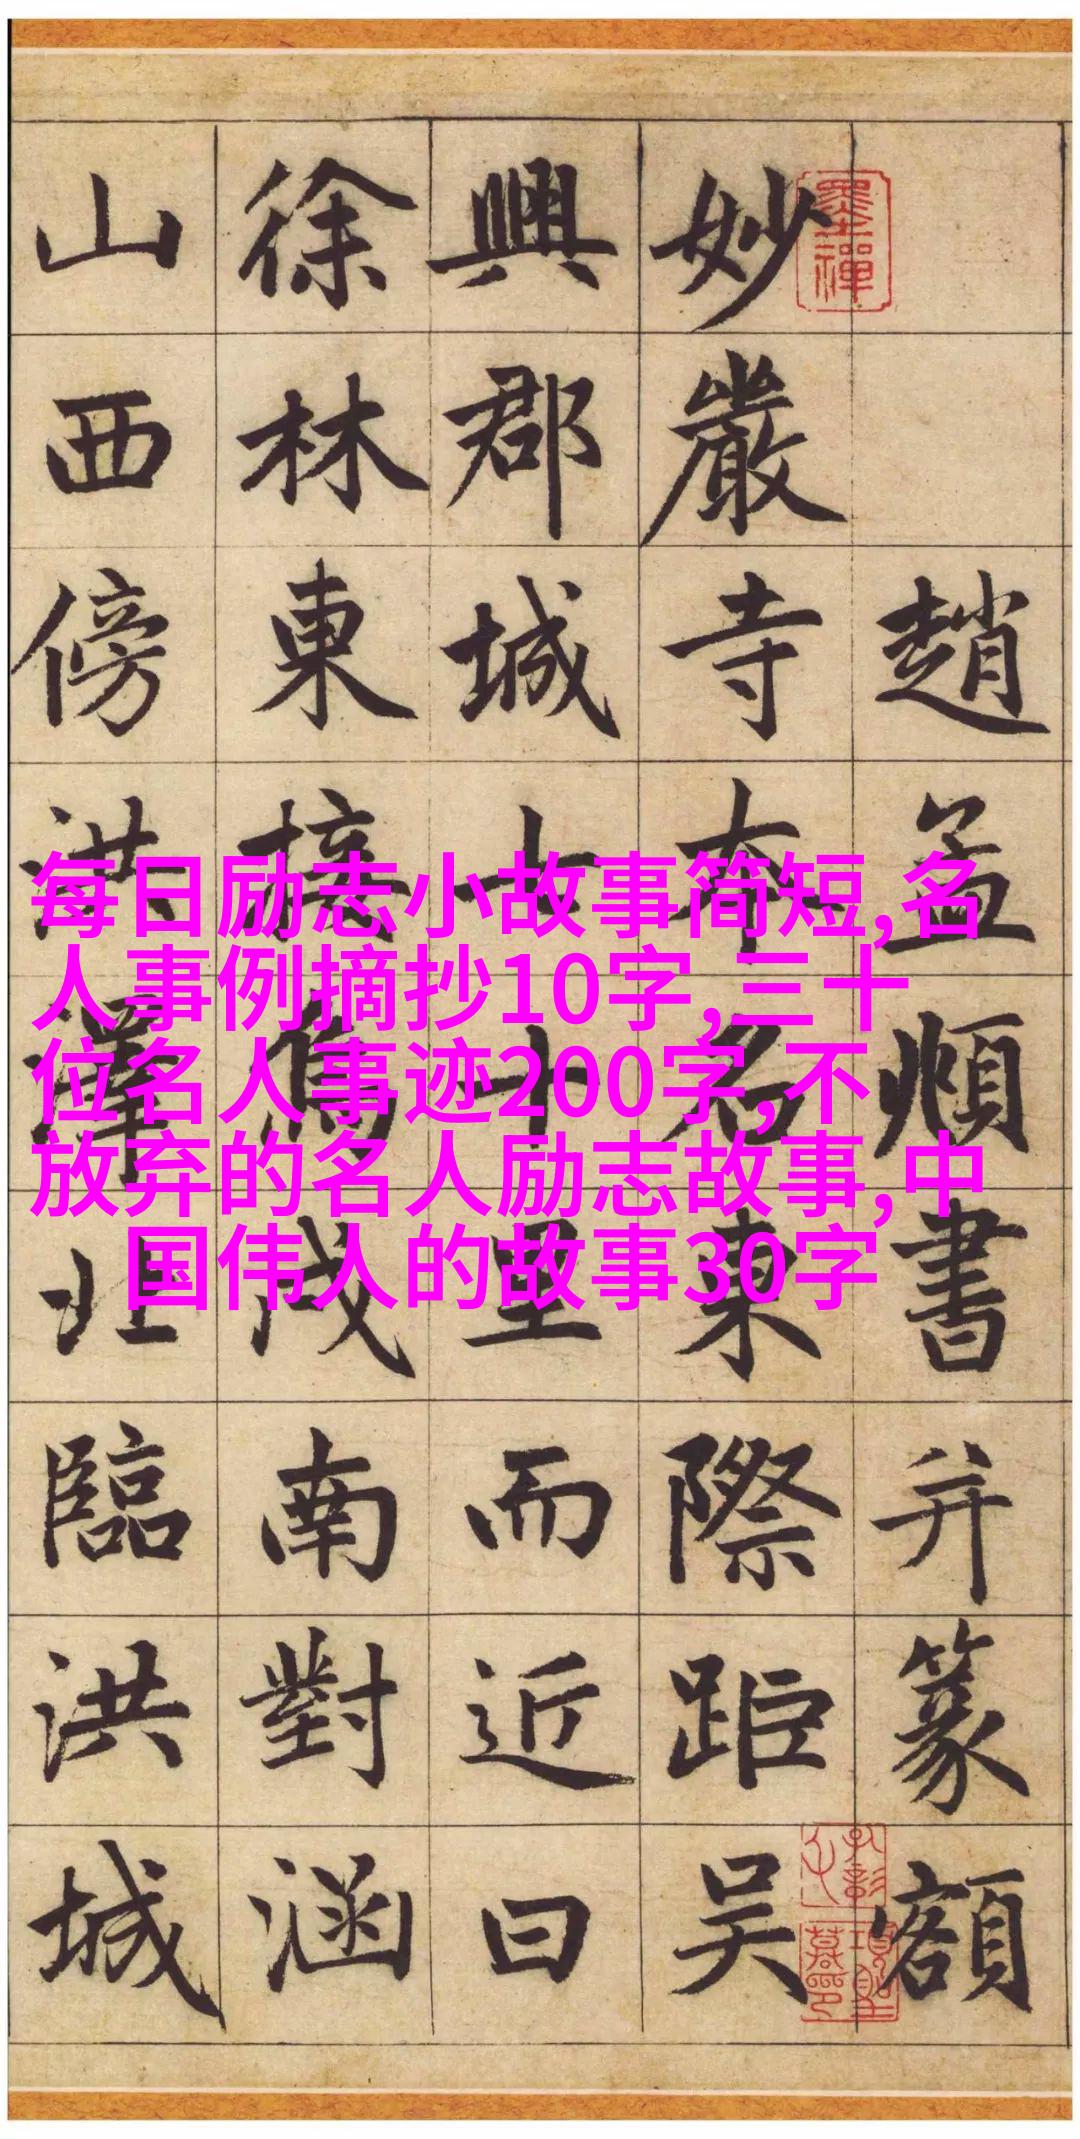 趙孟頫書并篆額
妙嚴寺本名東際距吳
興郡城七十里而近曰
徐林東接烏戍南對涵
山西傍洪澤北臨洪城
墨禪
每日励志小故事简短,名
人事例摘抄10字,三十
位名人事迹200字,不
放弃的名人励志故事,中
国伟人的故事30字